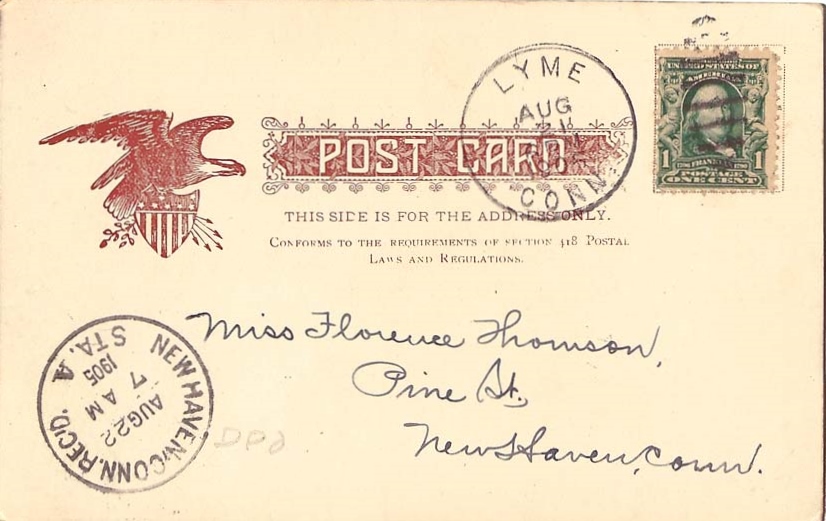 LYME
AUG
CONN.
UNITED STATES OF
AMERICA
1 FRANKLIN 1
POSTAGE
ONE CENT
POST CARD
THIS SIDE IS FOR THE ADDRESS ONLY.
CONFORMS TO THE REQUIREMENTS OF SECTION 418 POSTAL
LAWS AND REGULATIONS.
Miss Florence Thomson,
Pine St.,
New Haven, Conn.
NEW HAVEN, CONN. REC'D.
AUG 22
7 AM
1905
STA. A